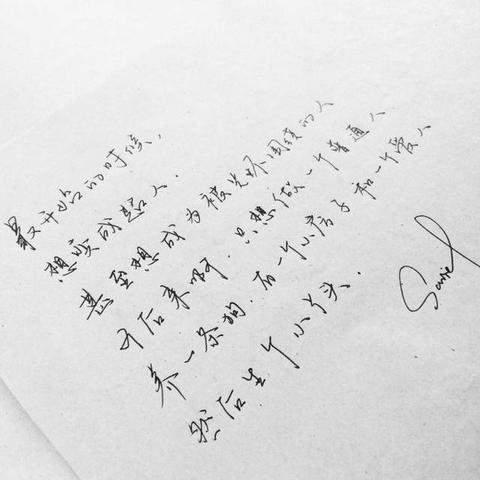 最开始的时候,
想变成超人.
甚至想成为被光环围绕的人
可后来啊.只想做一个普通人
养一条狗.有一个小房子和一个爱人
然后生个小丫头.